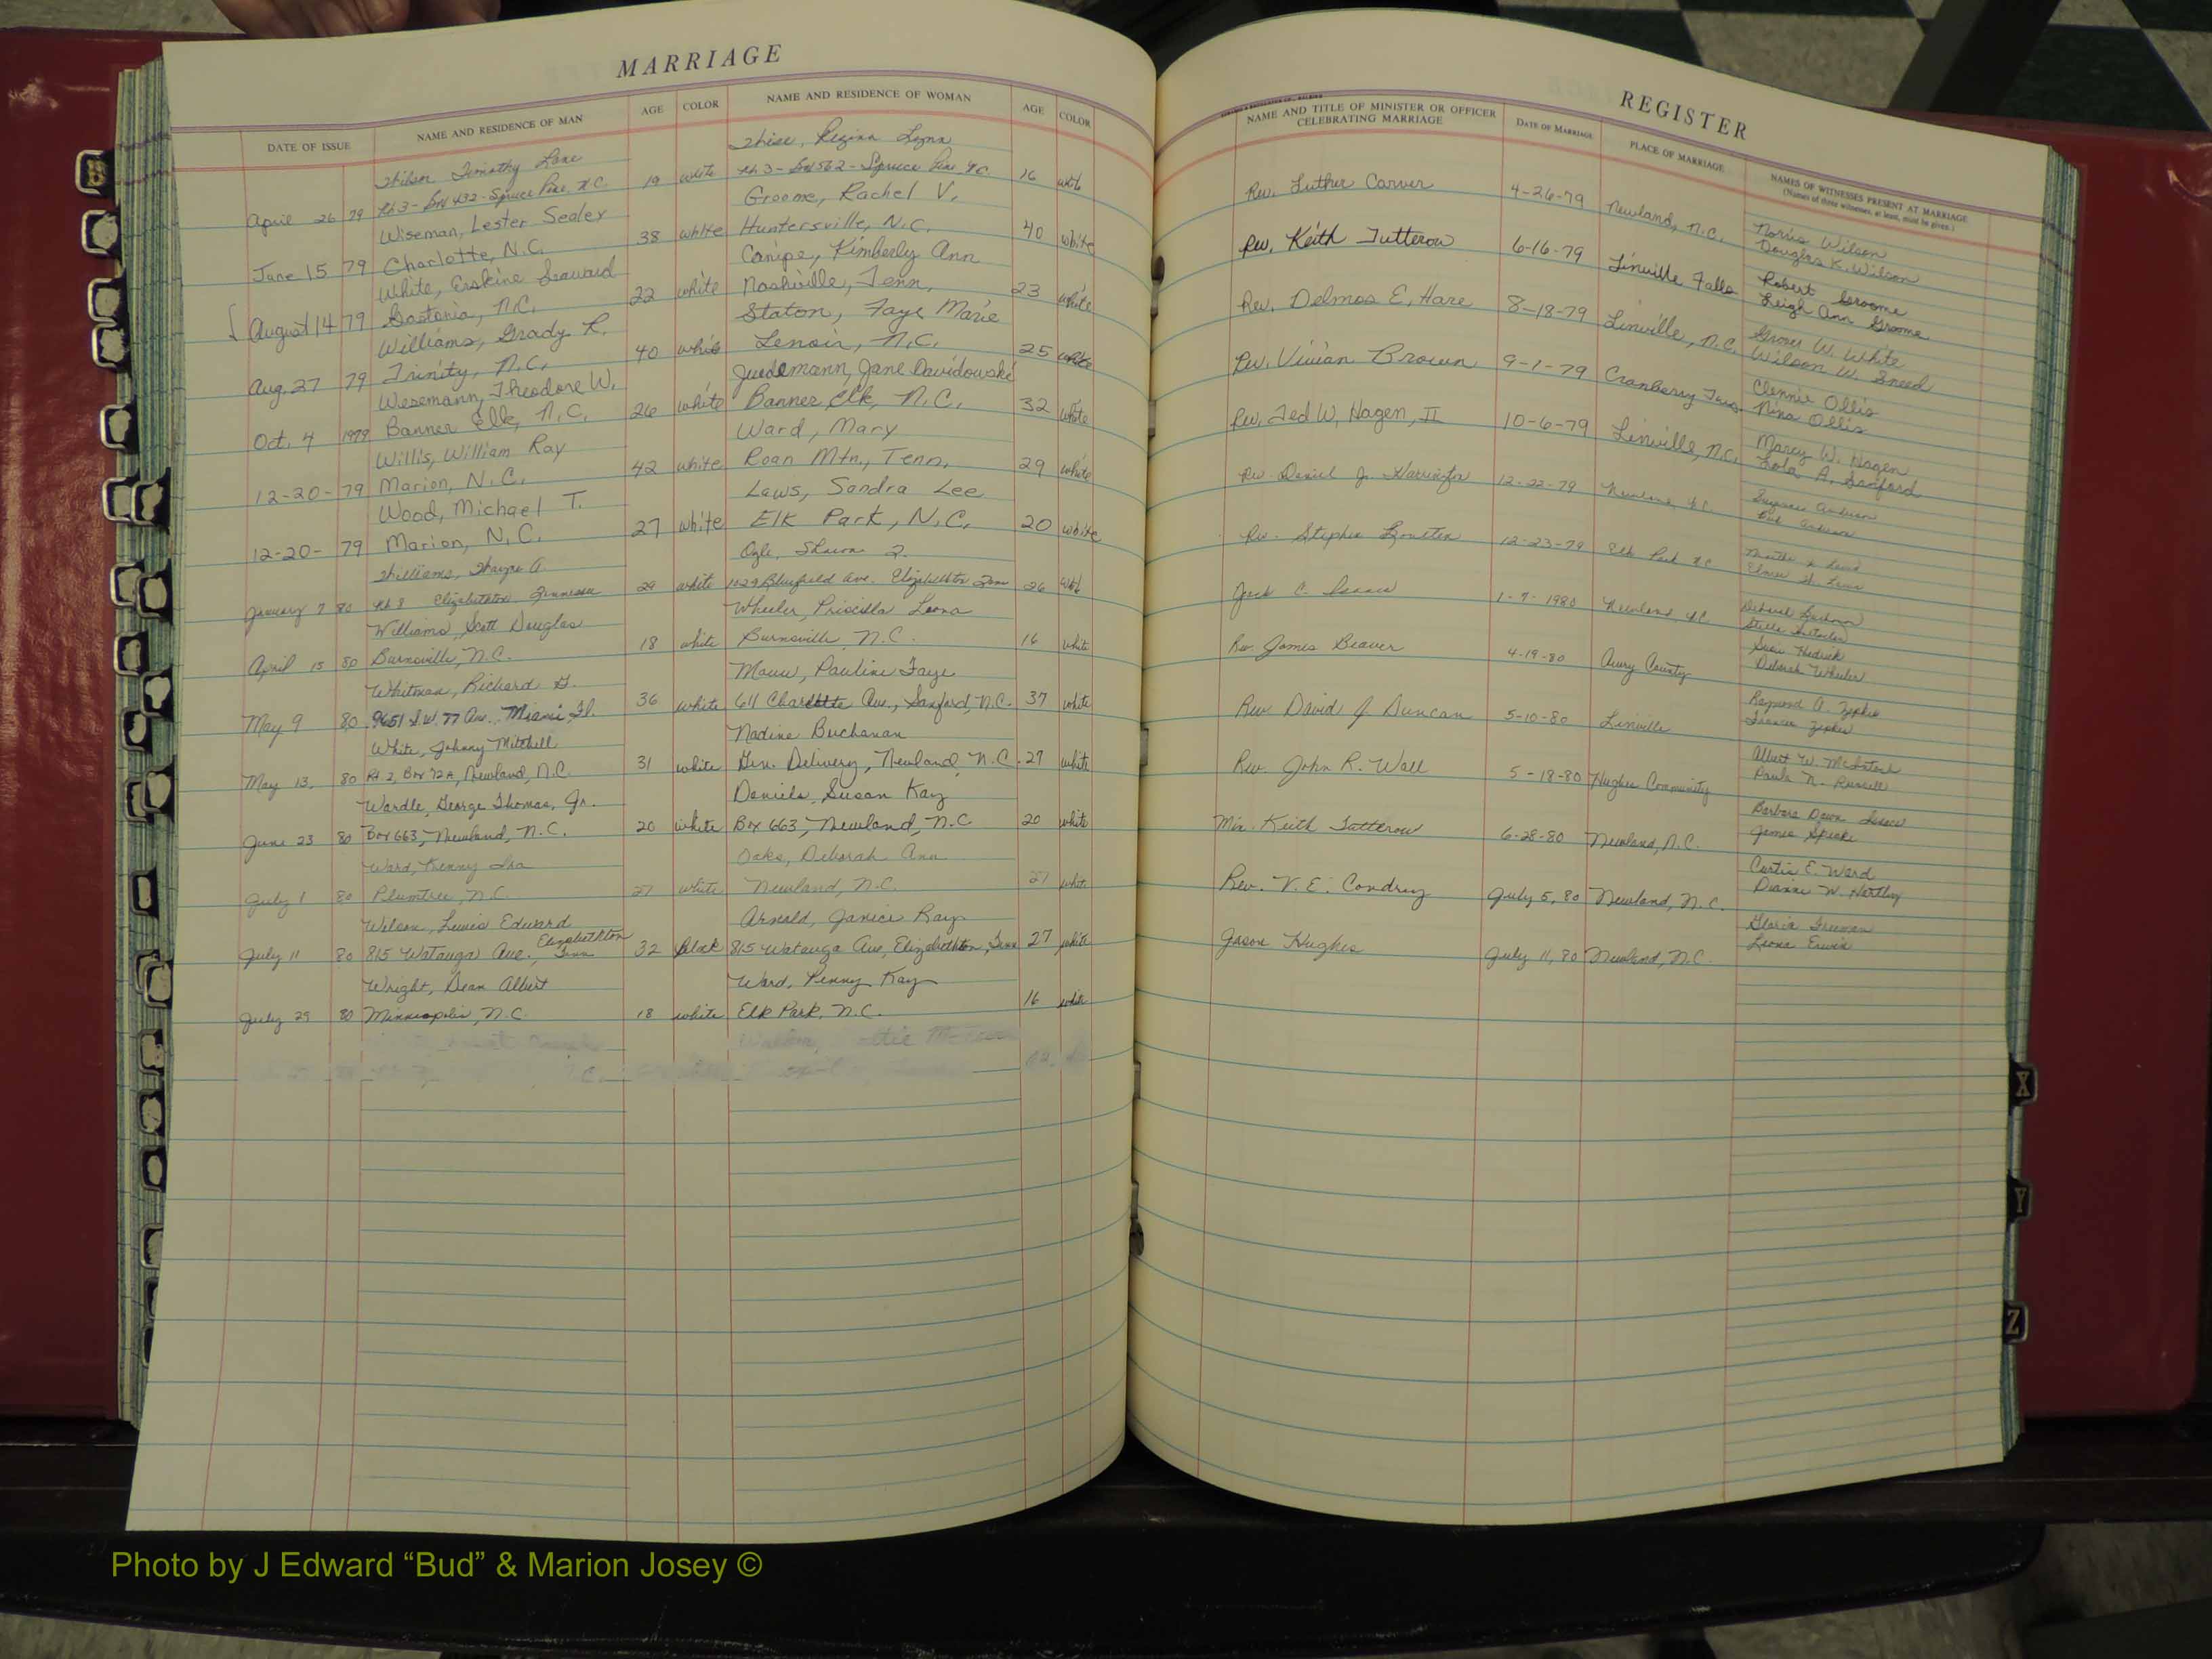 MARRIAGE
DATE OF ISSUE NAME AND RESIDENCE OF MAN AGE COLOR NAME AND RESIDENCE OF WOMAN AGE COLOR
Wilson, Timothy Lane Regina Lynn
April 26 79 Rt 3 - Box 432 - Spruce Pine, N.C. 19 white Rt. 3 - Box 562 - Spruce Pine, N.C. 16 white
Wiseman, Lester Sealer Groome, Rachel V.
June 15 79 Charlotte, N.C. 38 white Huntersville, N.C. 40 white
White, Erskine Seaward Canipe, Kimberly Ann
August 14 79 Gastonia, N.C. 22 white Nashville, Tenn. 23 white
Williams, Grady R. Staton, Faye Marie
Aug. 27 79 Trinity, N.C. 40 white Lenoir, N.C. 25 white
Wesemann, Theodore W. Juedemann, Jane Davidowski
Oct. 4 1979 Banner Elk, N.C. 26 white Banner Elk, N.C. 32 white
Willis, William Ray Ward, Mary
12-20- 79 Marion, N.C. 42 white Roan Mtn., Tenn. 29 white
Wood, Michael T. Laws, Sandra Lee
12-20- 79 Marion, N.C. 27 white Elk Park, N.C. 20 white
Williams, Wayne A Ogle, Sharon
January 7 80 Rt 8 Elizabethton Tennessee 29 white 1029 Bluefield Ave. Elizabethton Tenn 26 white
Williams, Scott Douglas Wheeler, Priscilla Leona
April 15 80 Burnsville, N.C. 18 white Burnsville, N.C. 16 white
Whitman, Richard G. Pauline Faye
May 9 80 9651 S.W. 77 Ave., Miami, Fl. 36 white 611 Charlotte Ave., Sanford, N.C. 37 white
White, Johnny Mitchell Nadine Buchanan
May 13, 80 Rt. 2, Box 72A, Newland, N.C. 31 white Gen. Delivery, Newland, N.C. 27 white
Wardle, George Thomas, Jr. Daniels, Susan Kay
June 23 80 Box 663, Newland, N.C. 20 white Box 663, Newland, N.C 20 white
Ward, Kenny Ira Oaks, Deborah Ann
July 1 80 Plumtree, N.C. 27 white Newland, N.C. 27 white
Wilson, Lewis Edward Arnold, Janice Kay
July 11 80 815 Watauga Ave. Elizabethton Tenn 32 Black 815 Watauga Ave, Elizabethton, Tenn 27 white
Wright, Dean Albert Ward, Penny Kay
July 29 80 Minneapolis, N.C. 18 white Elk Park, N.C. 16 white
REGISTER
NAME AND TITLE OF MINISTER OR OFFICER CELEBRATING MARRIAGE DATE OF MARRIAGE PLACE OF MARRIAGE NAMES OF WITNESSES PRESENT AT MARRIAGE
(Names of three witnesses, at least, must be given.)
Rev. Luther Carver 4-26-79 Newland, N.C. Norris Wilson
Douglas K. Wilson
Rev. Keith Tutterow 6-16-79 Linville Falls Robert Groome
Leigh Ann Groome
Rev. Delmos E. Hare 8-18-79 Linville, N.C. Grover W. White
Wilson W. Sneed
Rev. Vivian Brown 9-1-79 Cranberry Clennie Ollis
Nina Ollis
Rev. Ted W. Hagen, II 10-6-79 Linville, N.C. Marcy W. Hagen
Lola A. Sanford
Rev. Daniel J. 12-22-79 Newland, N.C.
Rev. Stephen 12-23-79 Elk Park N.C.
Jack C. 1-7-1980 Newland, N.C. Deborah
Stella
Rev. James Beaver 4-19-80 Avery County Hedrick
Deborah Wheeler
Rev David J Duncan 5-10-80 Linville Raymond A.
Frances
Rev. John R. Wall 5-18-80 Hughes Community Albert W. McIntosh
Paula N. Russell
Min. Keith Tutterow 6-28-80 Newland, N.C. Barbara Dawn
James
Rev. V. E. Condrey July 5, 80 Newland, N.C. Curtis E. Ward
Dianne W. Hartley
Jason Hughes July 11, 80 Newland, N.C. Gloria Freeman
Leona Erwin
X
Y
Z
Photo by J Edward “Bud” & Marion Josey ©